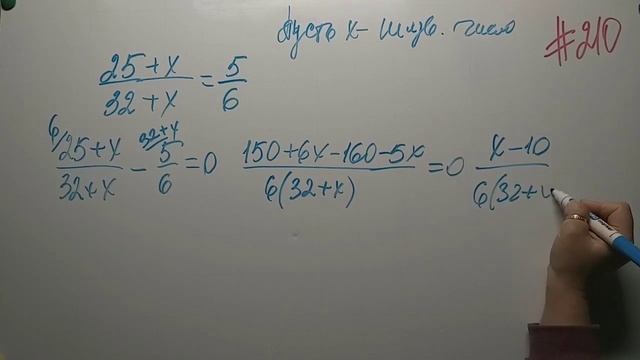 Пусть x - число
#210
25+x/32+x = 5/6
6/ 25+x/32+x - 32+x/ 5/6 = 0 150+6x-160-5x/6(32+x) = 0 x-10/6(32+x